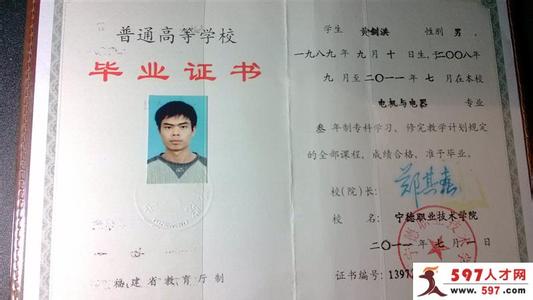 普通高等学校
毕业证书
福建省教育厅制
学生 黄剑洪 性别 男，
一九八九年 九 月 十 日生，于二〇〇八年
九 月至二〇一一年 七 月在本校
电机与电器 专业
叁 年制专科学习，修完教学计划规定
的全部课程，成绩合格，准予毕业。
校(院)长：
校 名： 宁德职业技术学院
二〇一一年 七 月 一 日
证书编号：1397
597人才网
www.597.com